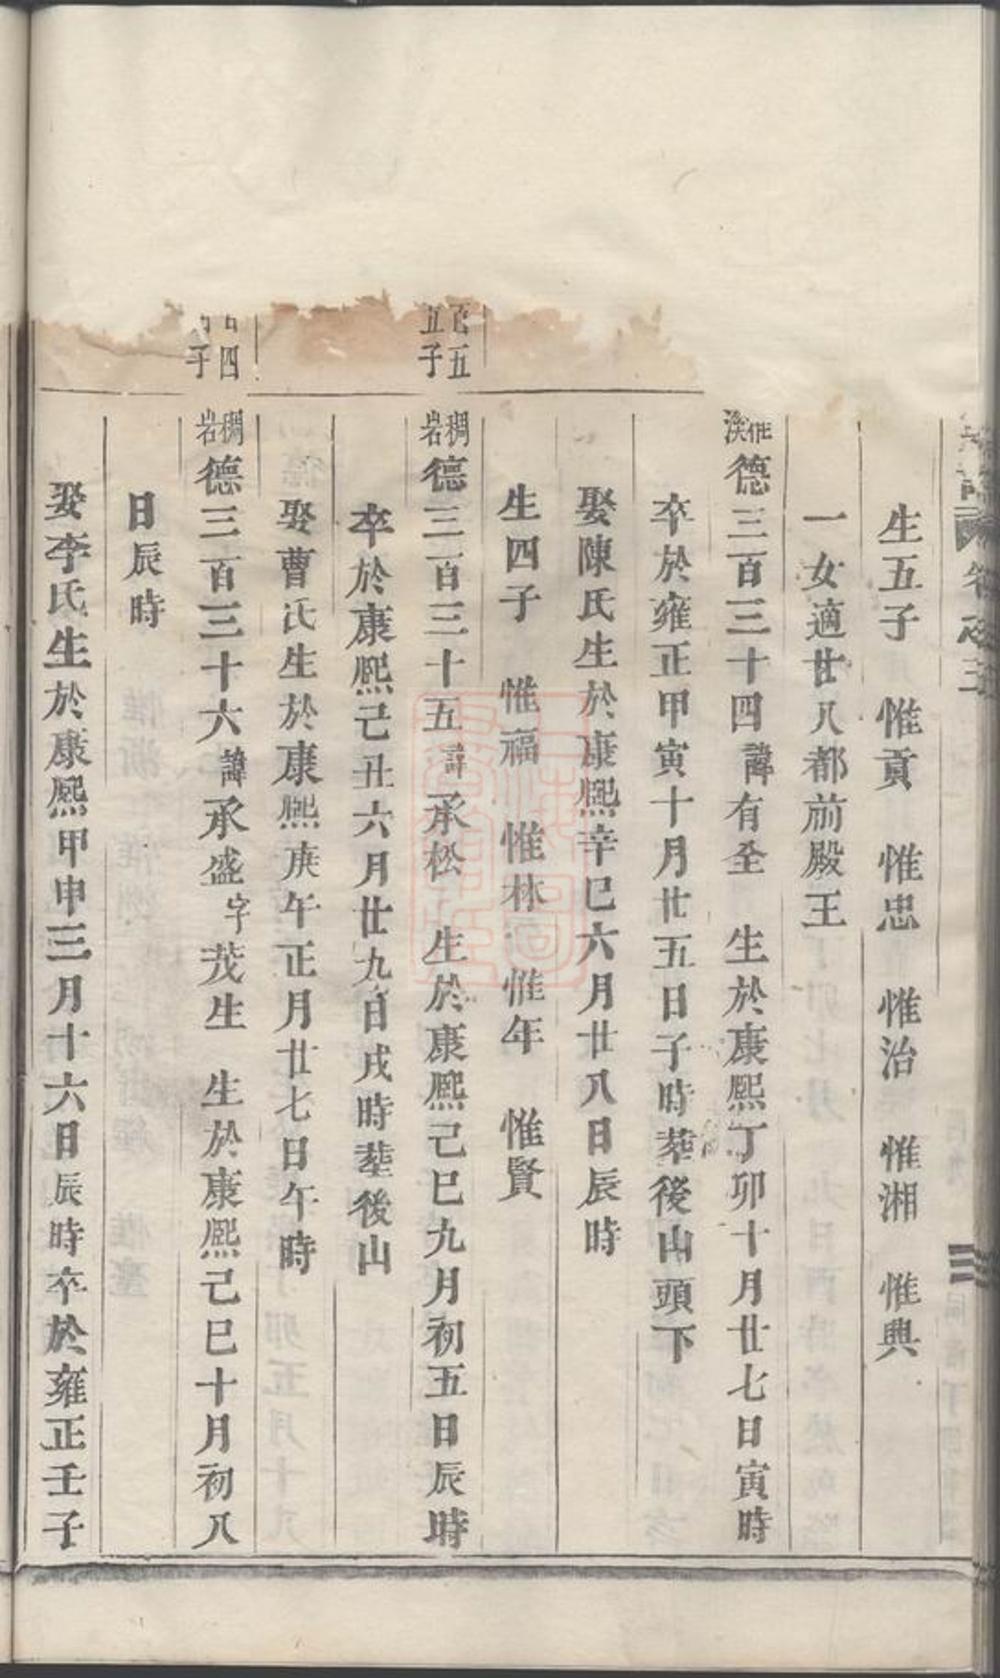 生五子　惟貢　惟忠　惟治　惟湘　惟興
一女適廿八都前殿王
德三百三十四諱有全　生於康熙丁卯十月廿七日寅時
卒於雍正甲寅十月廿五日子時塟後山頭下
娶陳氏生於康熙辛巳六月廿八日辰時
生四子　惟福　惟林　惟年　惟賢
百五
五子
稠岩德三百三十五諱承松　生於康熙己巳九月初五日辰時
卒於康熙己丑六月廿九日戌時塟後山
娶曹氏生於康熙庚午正月廿七日午時
四
子
稠岩德三百三十六諱承盛字茂生　生於康熙己巳十月初八
日辰時
娶李氏生於康熙甲申三月十六日辰時卒於雍正壬子